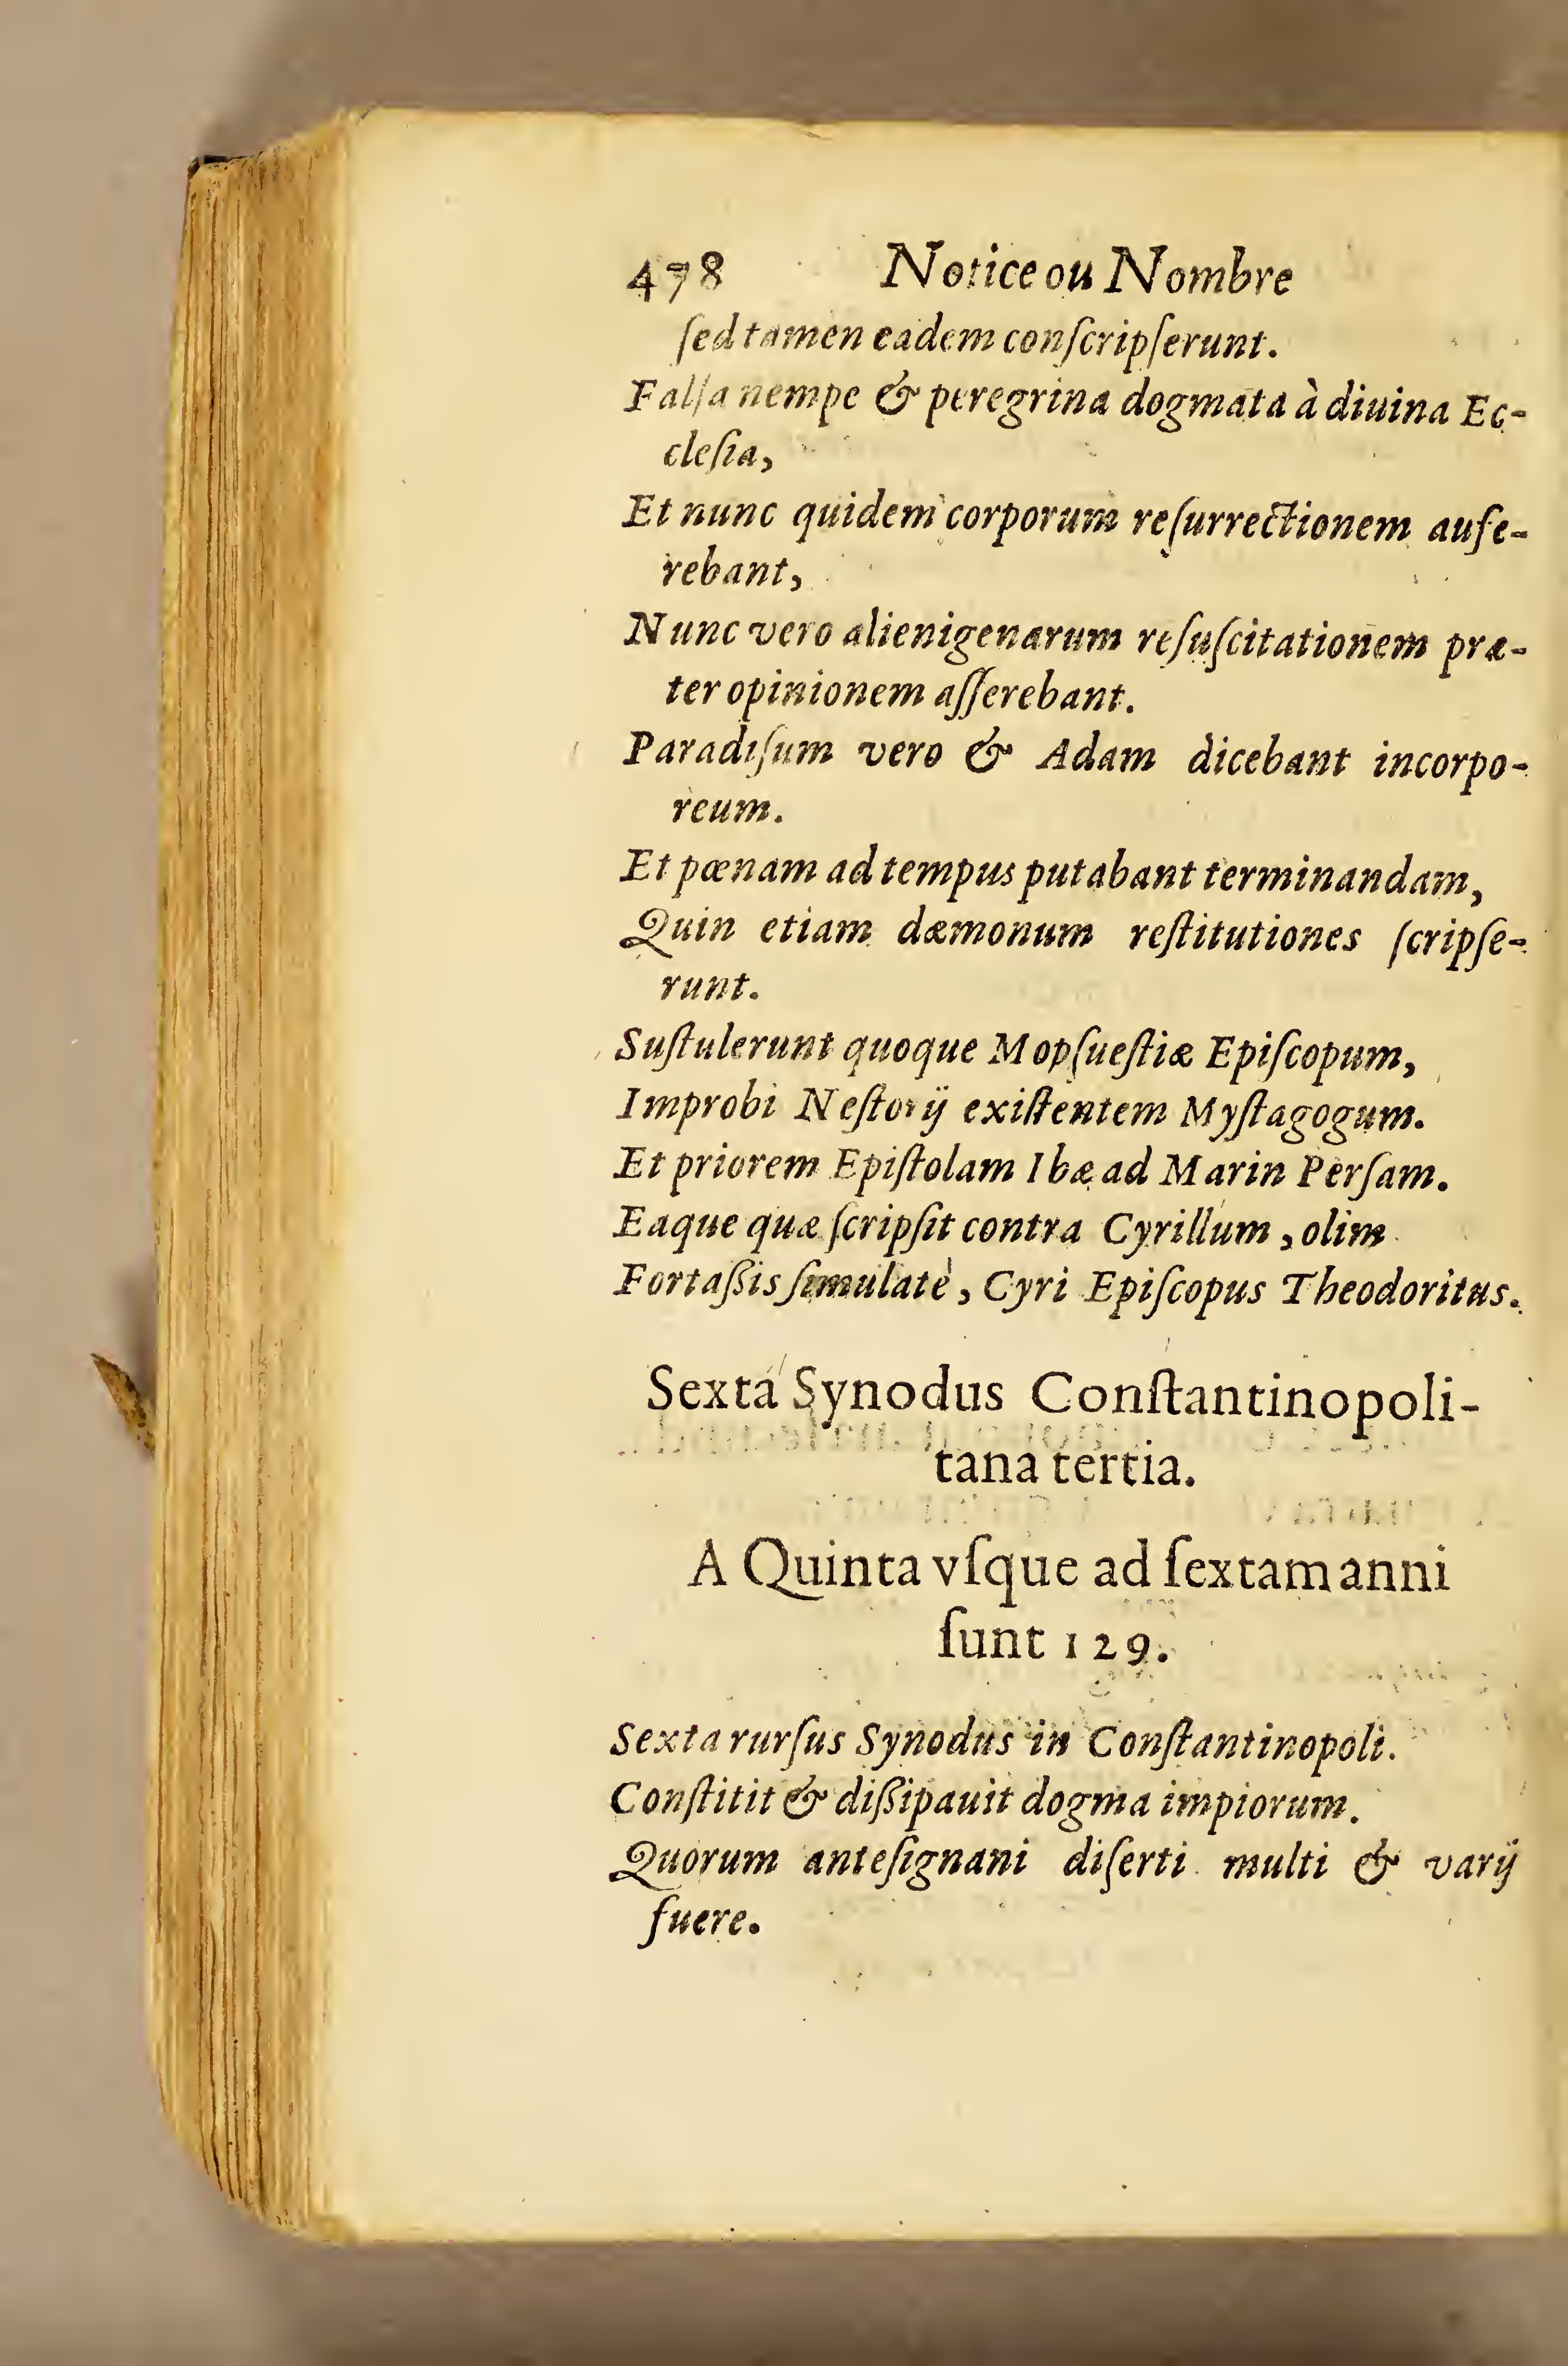 478 Notice ou Nombre
ſed tamen eadem conſcripſerunt.
Falſa nempe & peregrina dogmata à diuina Ec-
cleſia,
Et nunc quidem corporum reſurrectionem aufe-
rebant,
Nunc vero alienigenarum reſuſcitationem præ-
ter opinionem aſſerebant.
Paradiſum vero & Adam dicebant incorpo-
reum.
Et pœnam ad tempus putabant terminandam,
Quin etiam dæmonum reſtitutiones ſcripſe-
runt.
Suſtulerunt quoque Mopſueſtiæ Epiſcopum,
Improbi Neſtorij exiſtentem Myſtagogum.
Et priorem Epiſtolam Ibæ ad Marin Perſam.
Eaque quæ ſcripſit contra Cyrillum, olim
Fortaßis ſimulatè, Cyri Epiſcopus Theodoritus.
Sexta Synodus Conſtantinopoli-
tana tertia.
A Quinta vſque ad ſextam anni
ſunt 129.
Sexta rurſus Synodus in Conſtantinopoli.
Conſtitit & dißipauit dogma impiorum.
Quorum anteſignani diſerti multi & varij
fuere.